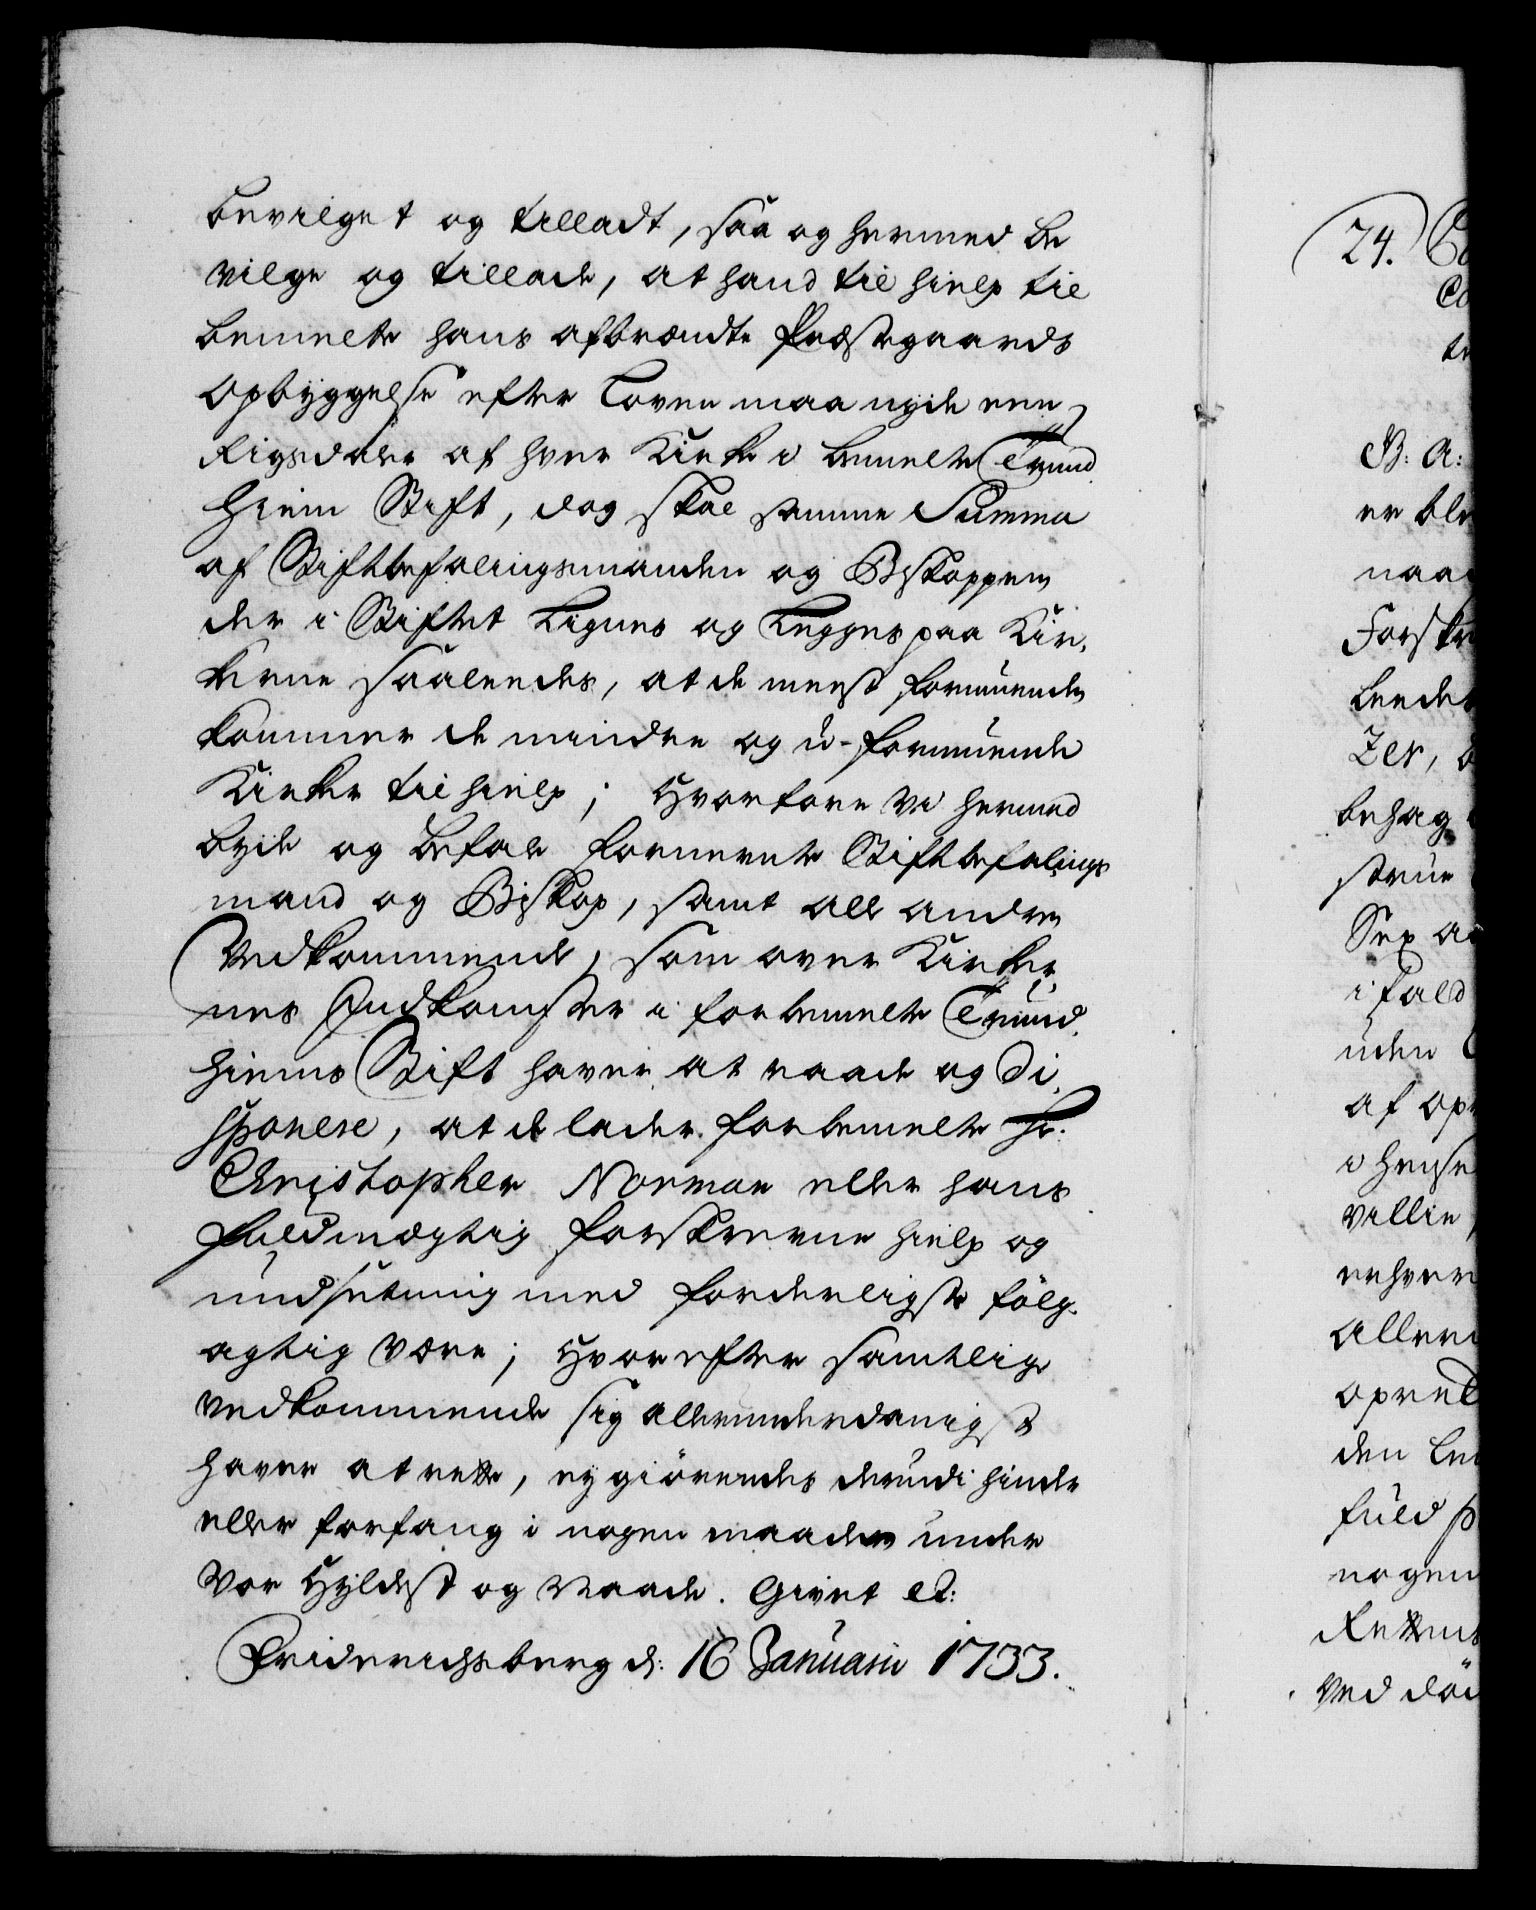 bevilget og tilladt, saa og hermed be
vilge og tillade, at hand til hielp til
bemelte hans afbrændte Præstegaards
opbyggelse efter Loven maa nyde een
Rigsdaler af hver Kirke i bemelte Trund
hiem Stift, dog skal samme Summa
af Stiftbefalingsmanden og Biskoppen
der i Stiftet Lignes og Legges paa Kir,
kerne saaledes, at de meest formuende
kommer de mindre og u-formuende
Kirker til hielp; Hvorfore Vi hermed
byde og befale fornevnte Stiftbefalings
mand og Biskop, samt alle andre
Vedkommende, som over Kirker,
nes Indkomster i forbemelte Trund,
hiems Stift haver at raade og Di,
sponere, at de lader forbemelte Hr:
Christopher Norman eller hans
fuldmægtig forskrevne hielp og
undsetning med forderligste følg,
agtig være; Hvorefter samtlige
vedkommende sig allerunderdanigst
haver at rette, ey giørendes derudi hinder
eller forfang i nogen maader under
Vor Hyldest og Naade. Givet et:
Friderichsberg d: 16 Januarii 1733.
24.
B: A:
er ble
naa
Forskr
beedet
Zer,
behag
strue
Sex a
ifald
uden
af op
i hense
villie
erhver
Aller
opret
den
fuld
nogen
Rettens
ved død